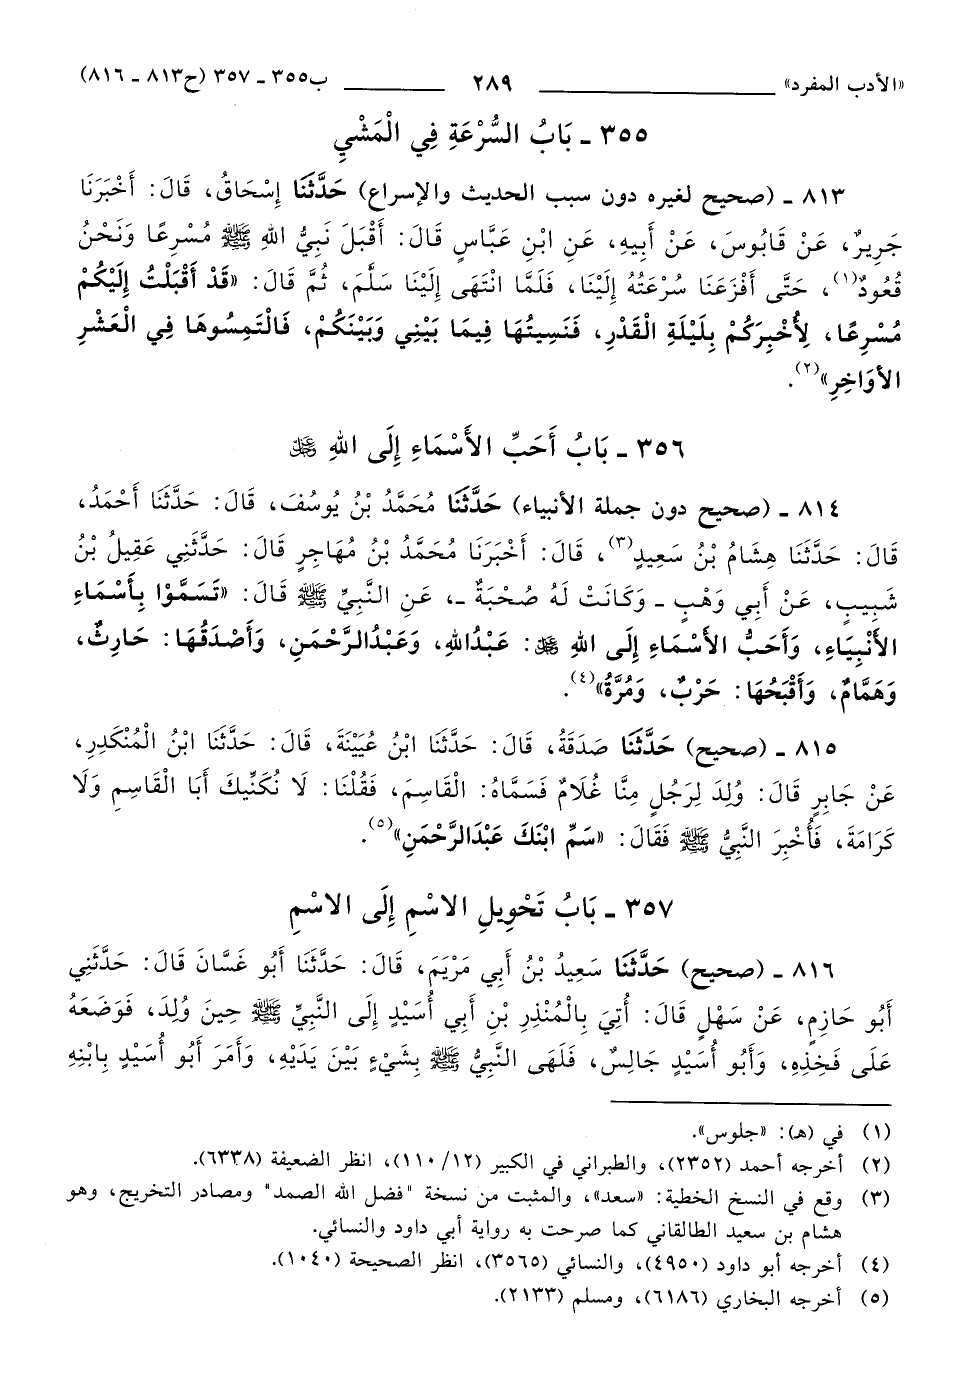 «الأدب المفرد» ٢٨٩ ب٣٥٥ - ٣٥٧ (ح٨١٣ - ٨١٦)
٣٥٥ - بَابُ السُّرْعَةِ فِي الْمَشْيِ
٨١٣ - (صحيح لغيره دون سبب الحديث والإسراع) حَدَّثَنَا إِسْحَاقُ، قَالَ: أَخْبَرَنَا
جَرِيرٌ، عَنْ قَابُوسَ، عَنْ أَبِيهِ، عَنِ ابْنِ عَبَّاسٍ قَالَ: أَقْبَلَ نَبِيُّ اللهِ ﷺ مُسْرِعًا وَنَحْنُ
قُعُودٌ(١)، حَتَّى أَفْزَعَنَا سُرْعَتُهُ إِلَيْنَا، فَلَمَّا انْتَهَى إِلَيْنَا سَلَّمَ، ثُمَّ قَالَ: «قَدْ أَقْبَلْتُ إِلَيْكُمْ
مُسْرِعًا، لِأُخْبِرَكُمْ بِلَيْلَةِ الْقَدْرِ، فَنَسِيتُهَا فِيمَا بَيْنِي وَبَيْنَكُمْ، فَالْتَمِسُوهَا فِي الْعَشْرِ
الأَوَاخِرِ»(٢).
٣٥٦ - بَابُ أَحَبِّ الأَسْمَاءِ إِلَى اللهِ ﷿
٨١٤ - (صحيح دون جملة الأنبياء) حَدَّثَنَا مُحَمَّدُ بْنُ يُوسُفَ، قَالَ: حَدَّثَنَا أَحْمَدُ،
قَالَ: حَدَّثَنَا هِشَامُ بْنُ سَعِيدٍ(٣)، قَالَ: أَخْبَرَنَا مُحَمَّدُ بْنُ مُهَاجِرٍ قَالَ: حَدَّثَنِي عَقِيلُ بْنُ
شَبِيبٍ، عَنْ أَبِي وَهْبٍ - وَكَانَتْ لَهُ صُحْبَةٌ -، عَنِ النَّبِيِّ ﷺ قَالَ: «تَسَمَّوْا بِأَسْمَاءِ
الأَنْبِيَاءِ، وَأَحَبُّ الأَسْمَاءِ إِلَى اللهِ ﷿: عَبْدُاللهِ، وَعَبْدُالرَّحْمَنِ، وَأَصْدَقُهَا: حَارِثٌ،
وَهَمَّامٌ، وَأَقْبَحُهَا: حَرْبٌ، وَمُرَّةُ»(٤).
٨١٥ - (صحيح) حَدَّثَنَا صَدَقَةُ، قَالَ: حَدَّثَنَا ابْنُ عُيَيْنَةَ، قَالَ: حَدَّثَنَا ابْنُ الْمُنْكَدِرِ،
عَنْ جَابِرٍ قَالَ: وُلِدَ لِرَجُلٍ مِنَّا غُلَامٌ فَسَمَّاهُ: الْقَاسِمَ، فَقُلْنَا: لَا نُكَنِّيكَ أَبَا الْقَاسِمِ وَلَا
كَرَامَةَ، فَأُخْبِرَ النَّبِيُّ ﷺ فَقَالَ: «سَمِّ ابْنَكَ عَبْدَالرَّحْمَنِ»(٥).
٣٥٧ - بَابُ تَحْوِيلِ الاسْمِ إِلَى الاسْمِ
٨١٦ - (صحيح) حَدَّثَنَا سَعِيدُ بْنُ أَبِي مَرْيَمَ، قَالَ: حَدَّثَنَا أَبُو غَسَّانَ قَالَ: حَدَّثَنِي
أَبُو حَازِمٍ، عَنْ سَهْلٍ قَالَ: أُتِيَ بِالْمُنْذِرِ بْنِ أَبِي أُسَيْدٍ إِلَى النَّبِيِّ ﷺ حِينَ وُلِدَ، فَوَضَعَهُ
عَلَى فَخِذِهِ، وَأَبُو أُسَيْدٍ جَالِسٌ، فَلَهَى النَّبِيُّ ﷺ بِشَيْءٍ بَيْنَ يَدَيْهِ، وَأَمَرَ أَبُو أُسَيْدٍ بِابْنِهِ
(١) في (هـ): «جلوس».
(٢) أخرجه أحمد (٢٣٥٢)، والطبراني في الكبير (١١٠/١٢)، انظر الضعيفة (٦٣٣٨).
(٣) وقع في النسخ الخطية: «سعد»، والمثبت من نسخة "فضل الله الصمد" ومصادر التخريج، وهو
هشام بن سعيد الطالقاني كما صرحت به رواية أبي داود والنسائي.
(٤) أخرجه أبو داود (٤٩٥٠)، والنسائي (٣٥٦٥)، انظر الصحيحة (١٠٤٠).
(٥) أخرجه البخاري (٦١٨٦)، ومسلم (٢١٣٣).